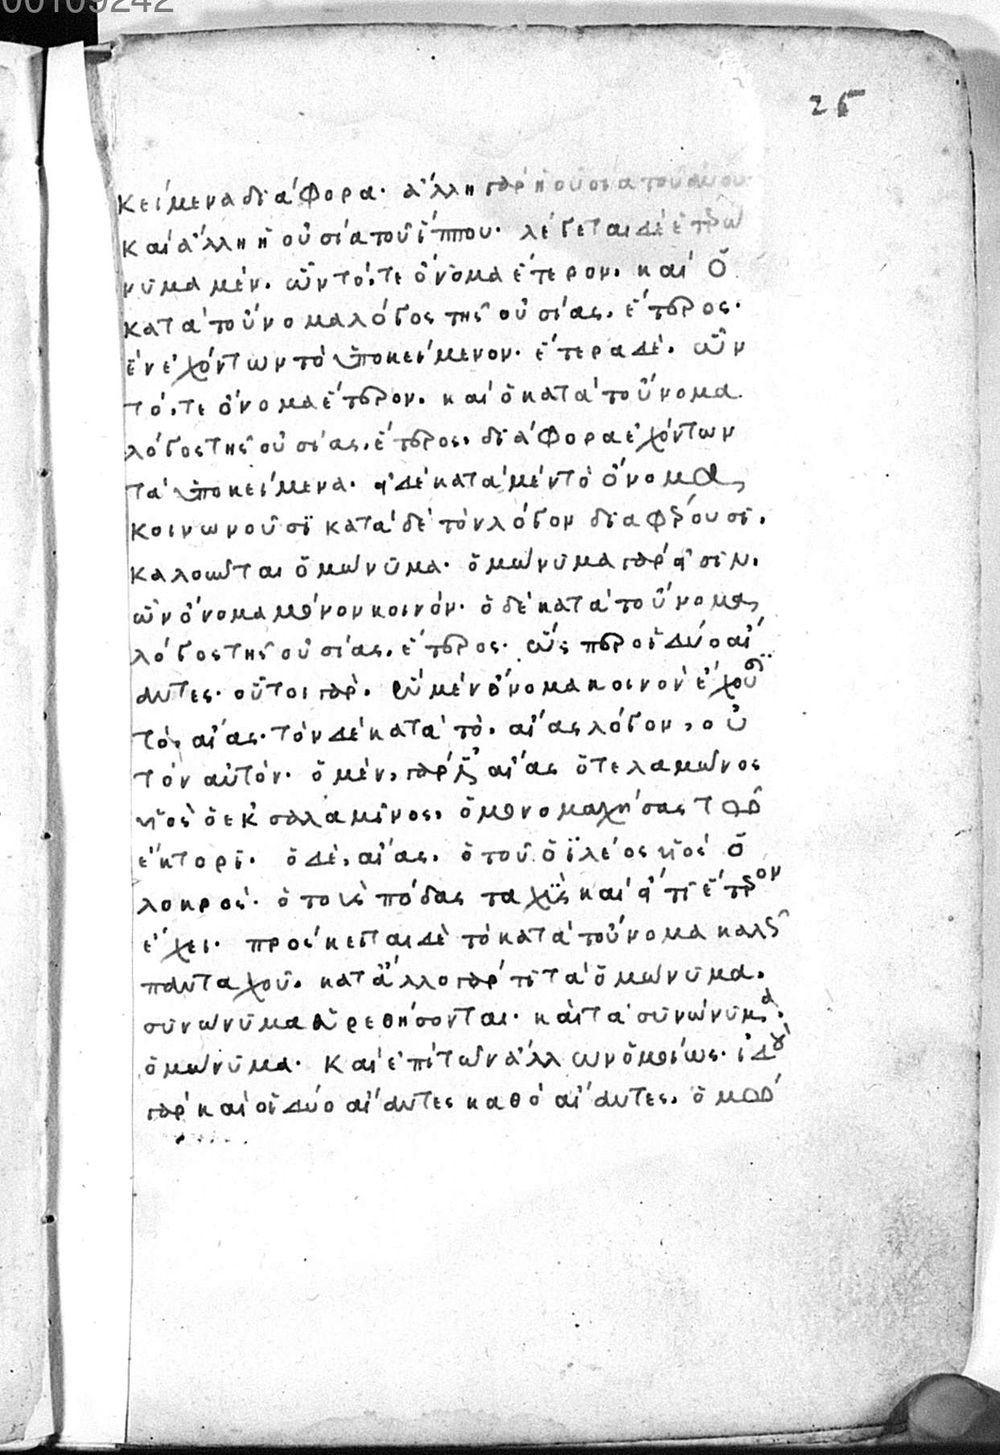 00109242
25
κείμενα διάφορα· ἄλλη γὰρ ἡ οὐσία τοῦ
καὶ ἄλλη ἡ οὐσία τοῦ ἵππου· λέγεται δὲ ἑτερω
νυμα μέν. ὧν τό, τε ὄνομα ἕτερον. καὶ ὁ
κατὰ τοὔνομα λόγος τῆς οὐσίας. ἕτερος·
ἓν ἐχόντων τὸ ὑποκείμενον· ἕτερα δὲ. ὧν
τό, τε ὄνομα ἕτερον. καὶ ὁ κατὰ τοὔνομα
λόγος τῆς οὐσίας. ἕτερος. διάφορα ἐχόντων
τὰ ὑποκείμενα· εἰ δὲ κατὰ μὲν τὸ ὄνομα
κοινωνοῦσι κατὰ δὲ τὸν λόγον διαφέρουσι.
καλοῦνται ὁμώνυμα· ὁμώνυμα γάρ εἰσιν.
ὧν ὄνομα μόνον κοινόν· ὁ δὲ κατὰ τοὔνομα
λόγος τῆς οὐσίας. ἕτερος· ὥσπερ οἱ δύο αἴ
αντες· οὗτοι γὰρ. μὲν ὄνομα κοινὸν ἔχουσι
τὸ, αἴας· τὸν δὲ κατὰ τὸ. αἴας λόγον, οὐ
τὸν αὐτόν· ὁ μὲν, γάρ ἐστιν αἴας ὁ τελαμῶνος
υἱὸς ὁ ἐκ σαλαμῖνος. ὁ μονομαχήσας τῷ
ἕκτορι· ὁ δὲ, αἴας. ὁ τοῦ ὀϊλέος υἱὸς ὁ
λοκρός· ὁ τοὺς πόδας ταχὺς καὶ εἴ τι ἕτερον
ἔχει· προσκεῖται δὲ τὸ κατὰ τοὔνομα καλῶς
πανταχοῦ. κατ' ἄλλο γάρ τι τὰ ὁμώνυμα.
συνώνυμα εὑρεθήσονται· καὶ τὰ συνώνυμα.
ὁμώνυμα· καὶ ἐπὶ τῶν ἄλλων ὁμοίως· ἰδοὺ
γὰρ καὶ οἱ δύο αἴαντες καθὸ αἴαντες. ὁμώ